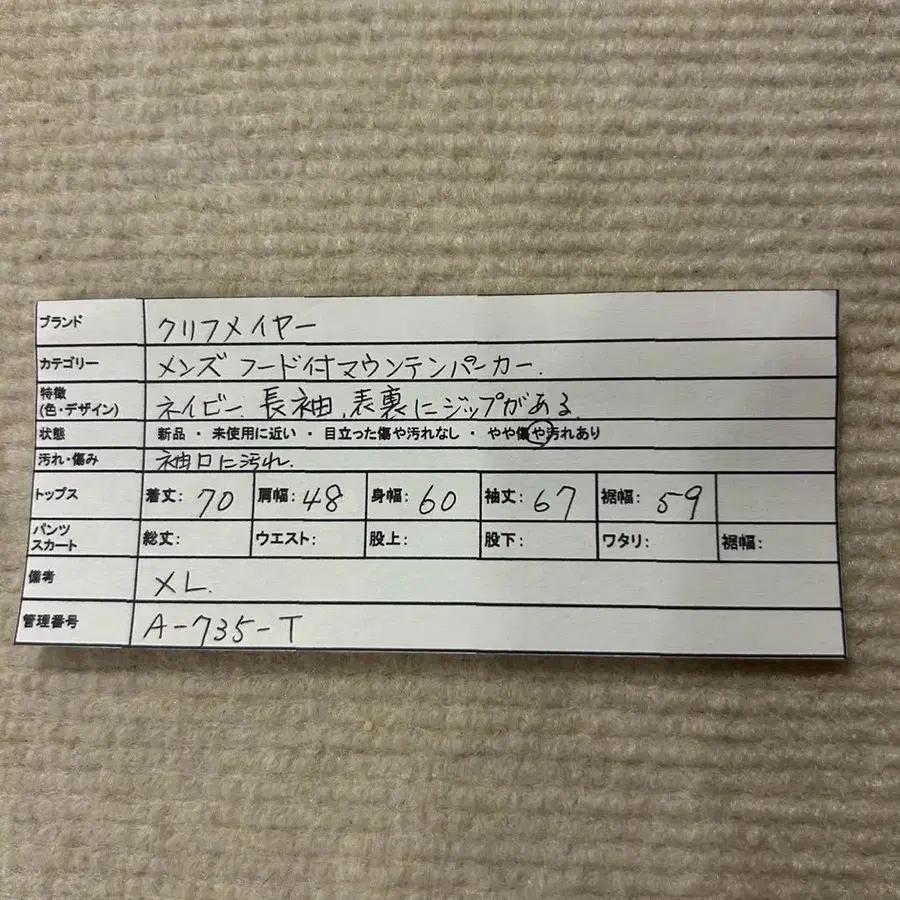 ブランド クリフメイヤー
カテゴリー メンズ フード付マウンテンパーカー.
特徴
(色・デザイン) ネイビー、長袖、表裏にジップがある.
状態 新品 ・ 未使用に近い ・ 目立った傷や汚れなし ・ やや傷や汚れあり
汚れ・傷み 袖口に汚れ.
トップス 着丈: 70 肩幅: 48 身幅: 60 袖丈: 67 裾幅: 59
パンツ
スカート 総丈: ウエスト: 股上: 股下: ワタリ: 裾幅:
備考 XL.
管理番号 A-735-T